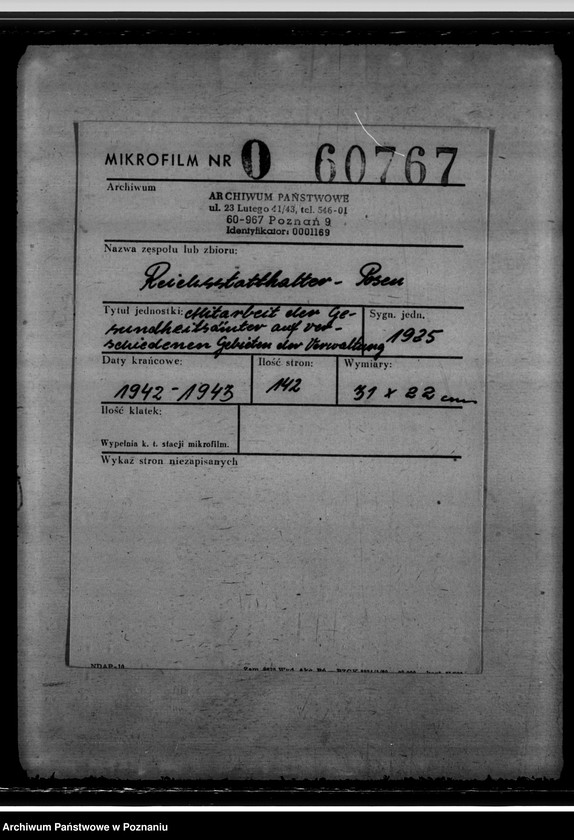 MIKROFILM NR 0 60767
Archiwum
ARCHIWUM PAŃSTWOWE
ul. 23 Lutego 41/43, tel. 546-01
60-967 Poznań 9
Identyfikator: 0001169
Nazwa zespołu lub zbioru:
Reichsstatthalter - Posen
Tytuł jednostki: Mitarbeit der Ge-
sundheitsämter auf ver-
schiedenen Gebieten der Verwaltung
Sygn. jedn.
1925
Daty krańcowe:
1942 - 1943
Ilość stron:
142
Wymiary:
31 x 22 cm
Ilość klatek:
Wypełnia k. t. stacji mikrofilm.
Wykaz stron niezapisanych
Archiwum Państwowe w Poznaniu